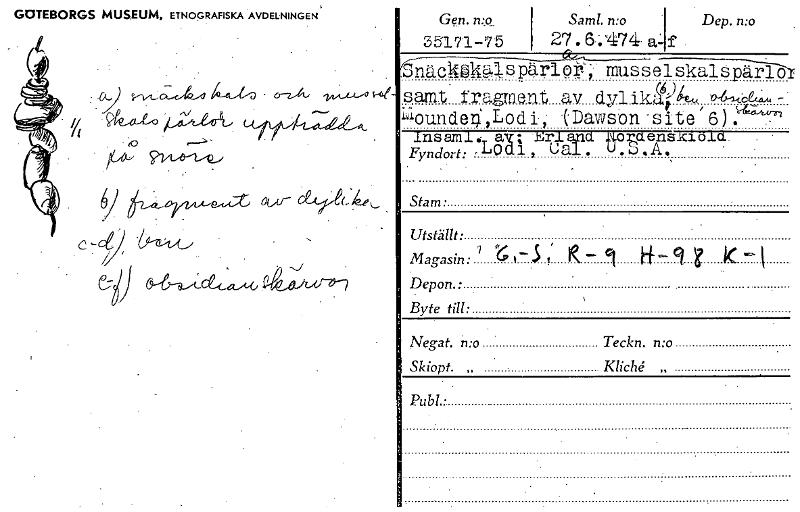 GÖTEBORGS MUSEUM, ETNOGRAFISKA AVDELNINGEN
a) snäckskals och mussel-
skalspärlor uppträdda
på snöre
1/1
b) fragment av dylika
c-d) ben
e-f) obsidianskärvor
Gen. n:o
35171-75
Saml. n:o
27.6.474 a-f
Dep. n:o
a
Snäckskalspärlor, musselskalspärlor
samt fragment av dylika, (b) ben obsidian-
skärvor
Mounden, Lodi, (Dawson site 6).
Insaml. av: Erland Nordenskiöld
Fyndort: Lodi, Cal. U.S.A.
Stam:
Utställt:
Magasin: G.-S. R-9 H-98 K-1
Depon.:
Byte till:
Negat. n:o Teckn. n:o
Skiopt. „ Kliché „
Publ.: